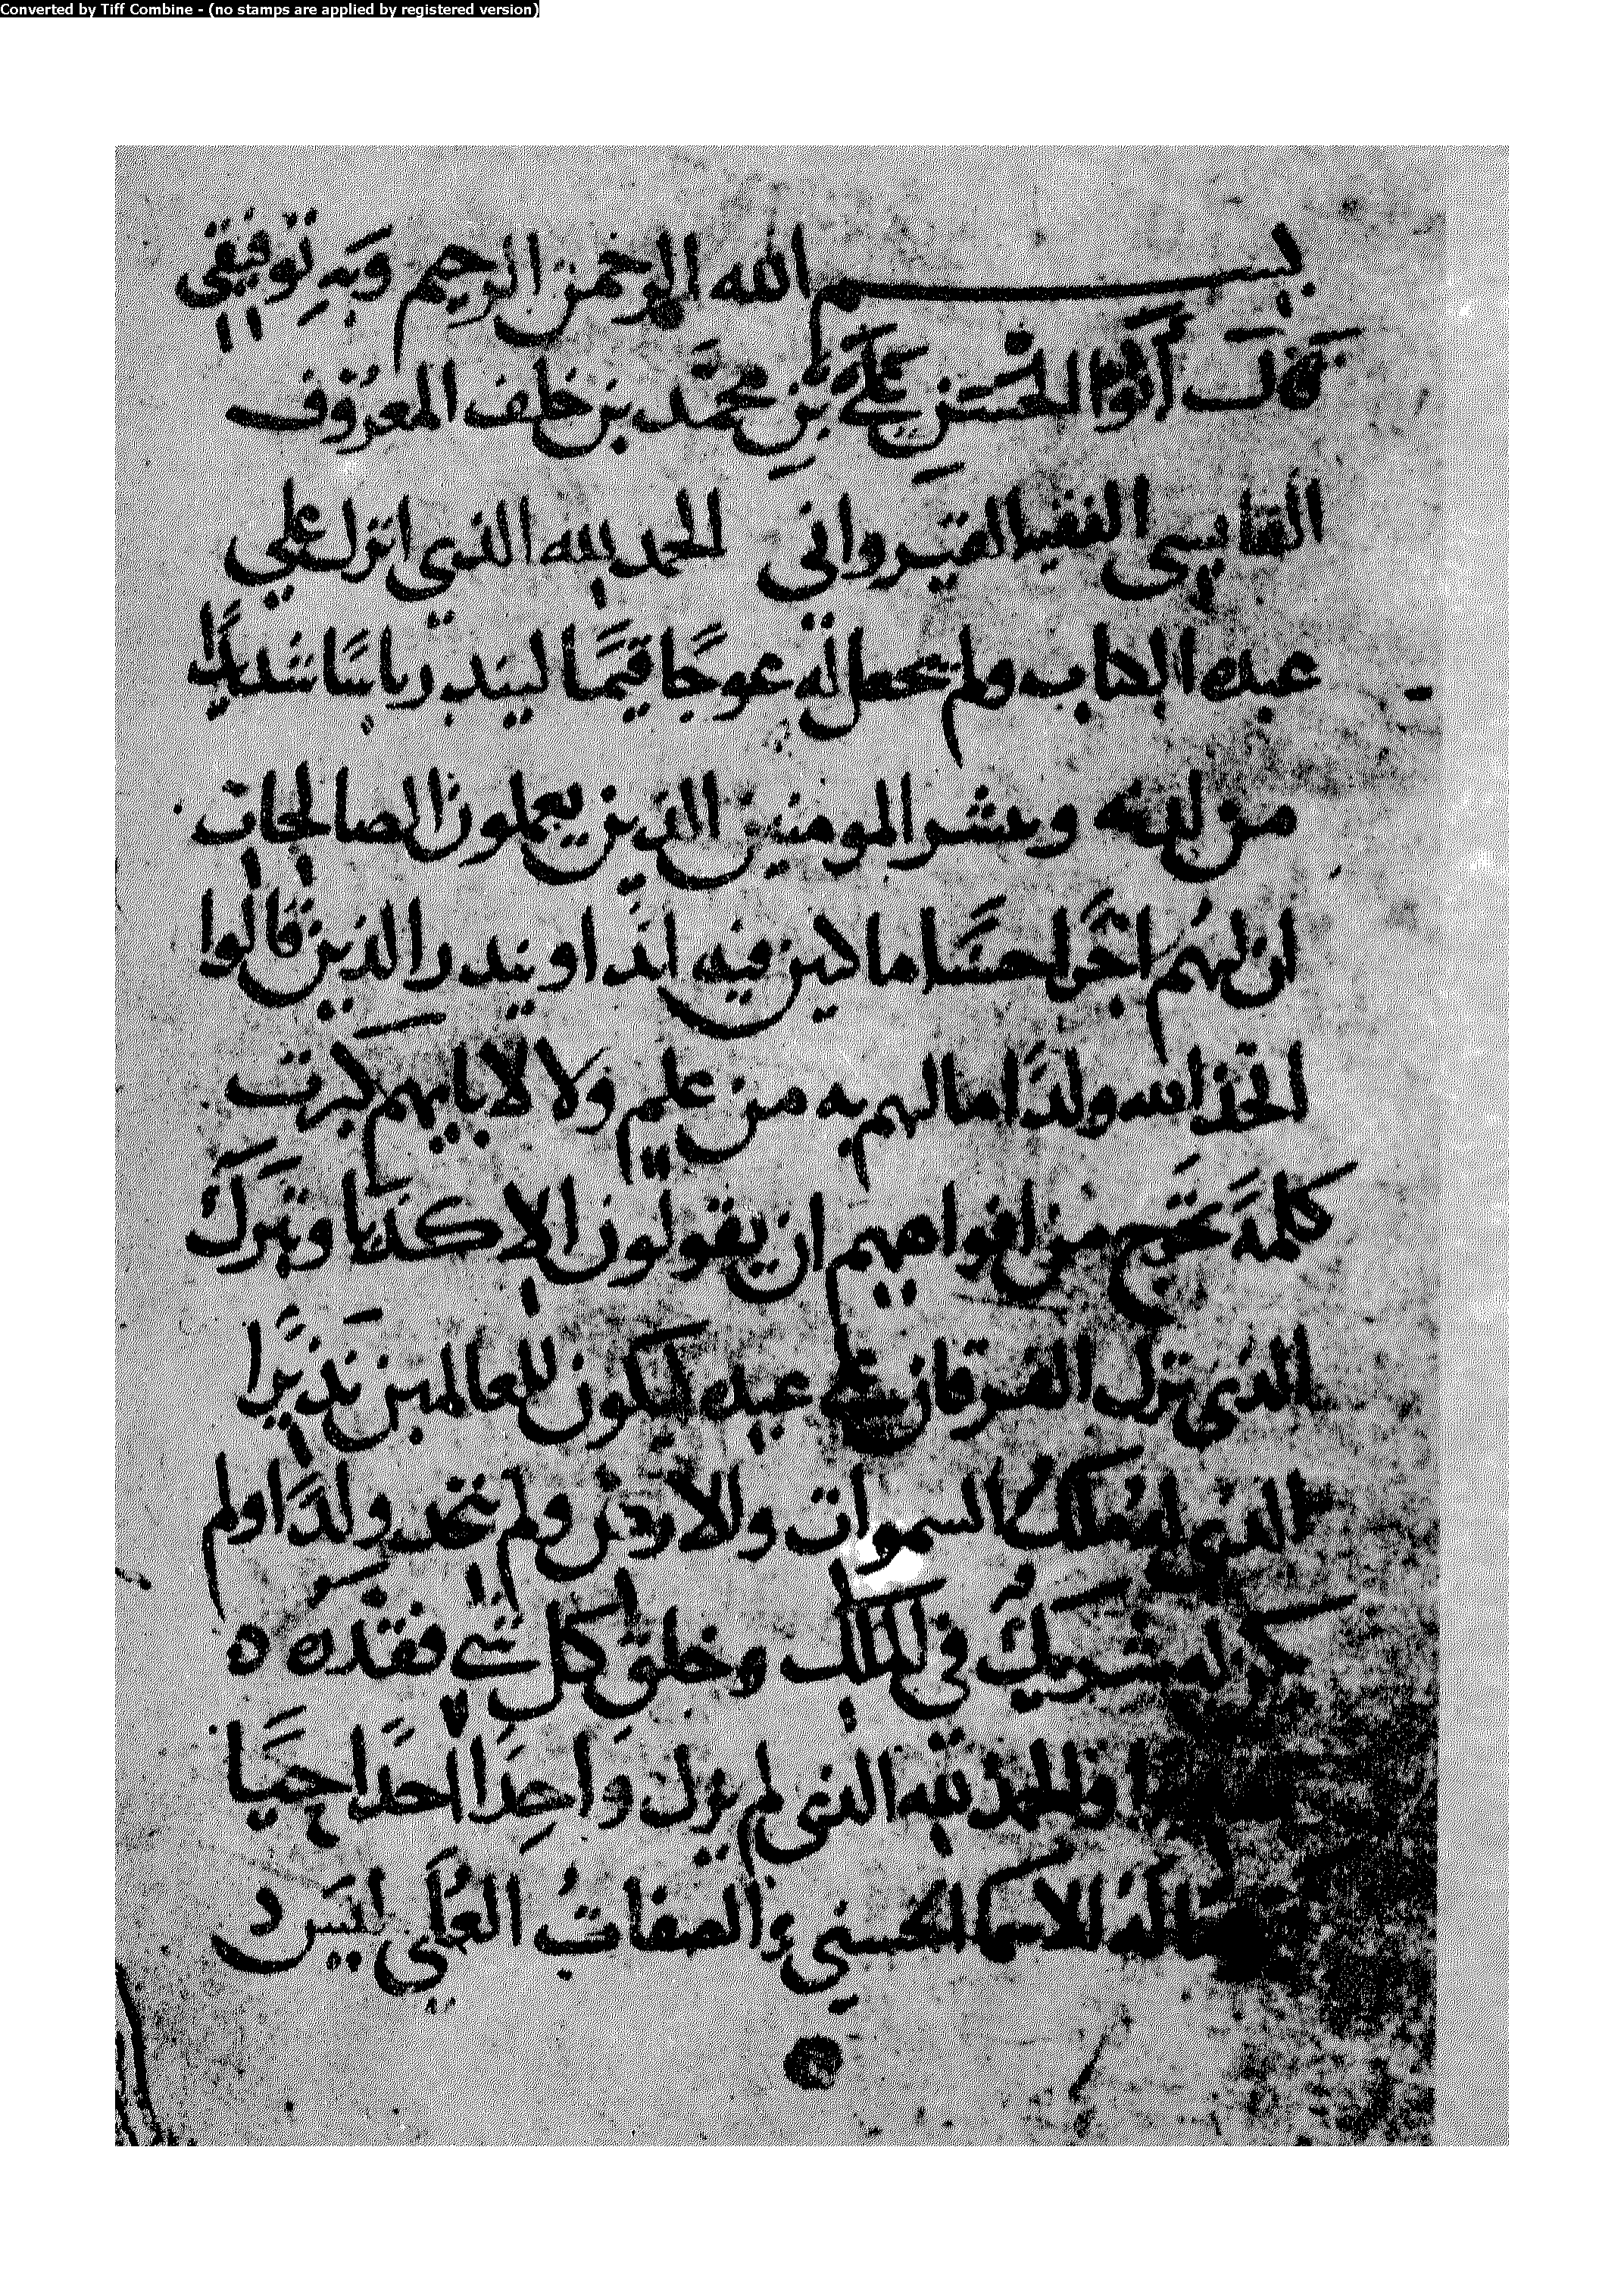 Converted by Tiff Combine - (no stamps are applied by registered version)
بسم الله الرحمن الرحيم وبه توفيقي
قال أبوا الحسن علي بن محمد بن خلف المعروف
القابسي الفقيه القيرواني الحمد لله الذي انزل علي
عبده الكتاب ولم يجعل له عوجًا قيمًا لينذر باسًا شديدًا
من لدنه ويبشر المومنين الذين يعملون الصالحات
ان لهم اجرا حسنا ماكثين فيه ابدا وينذر الذين قالوا
اتخذ الله ولدًا مالهم به من علم ولا لابايهم كبرت
كلمة تخرج من افواههم ان يقولون الا كذبا وتبرك
الذي نزل الفرقان علي عبده ليكون للعالمين نذيرًا
الذي له ملك السموات والارض ولم يتخذ ولدًا ولم
يكن له شريك في الملك وخلق كل شي فقدره
والحمد لله الذي لم يزل وَاحِدًا احدا حيًا
له الاسما الحسني والصفات العلي ليس د